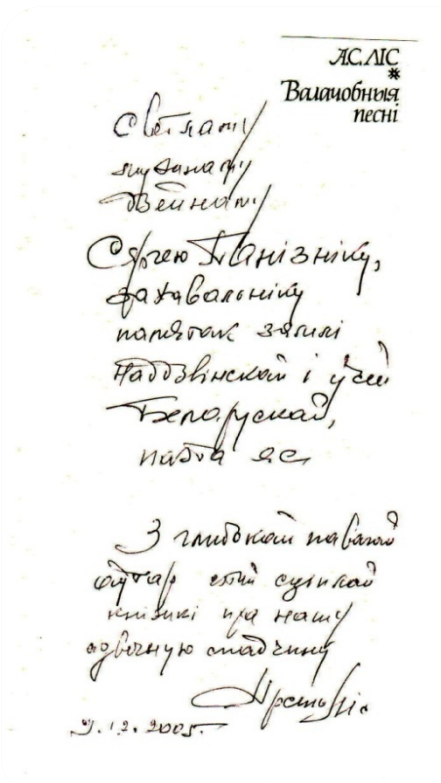 А.С.ЛІС
*
Валачобныя
песні
Светламу
Сяргею Панізніку,
захавальніку
памятак зямлі
Наддзвінскай і ўсёй
Беларускай,
З глыбокай павагай
аўтар гэтай сціплай
кніжкі пра нашу
адвечную спадчыну
Арсень Ліс
9.12.2005.